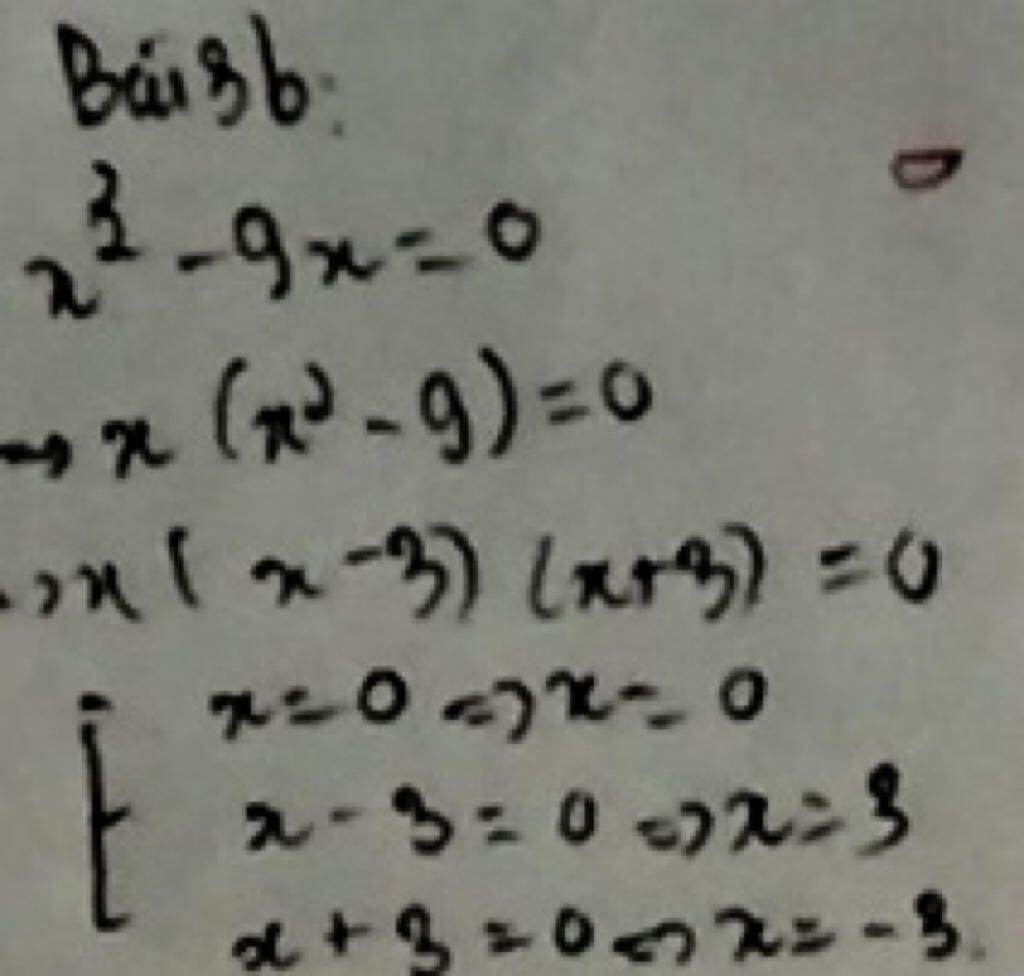 Bài 3b:
x³ - 9x = 0
⇒ x (x² - 9) = 0
⇒ x ( x - 3) (x + 3) = 0
x = 0 ⇒ x = 0
x - 3 = 0 ⇒ x = 3
x + 3 = 0 ⇒ x = -3.